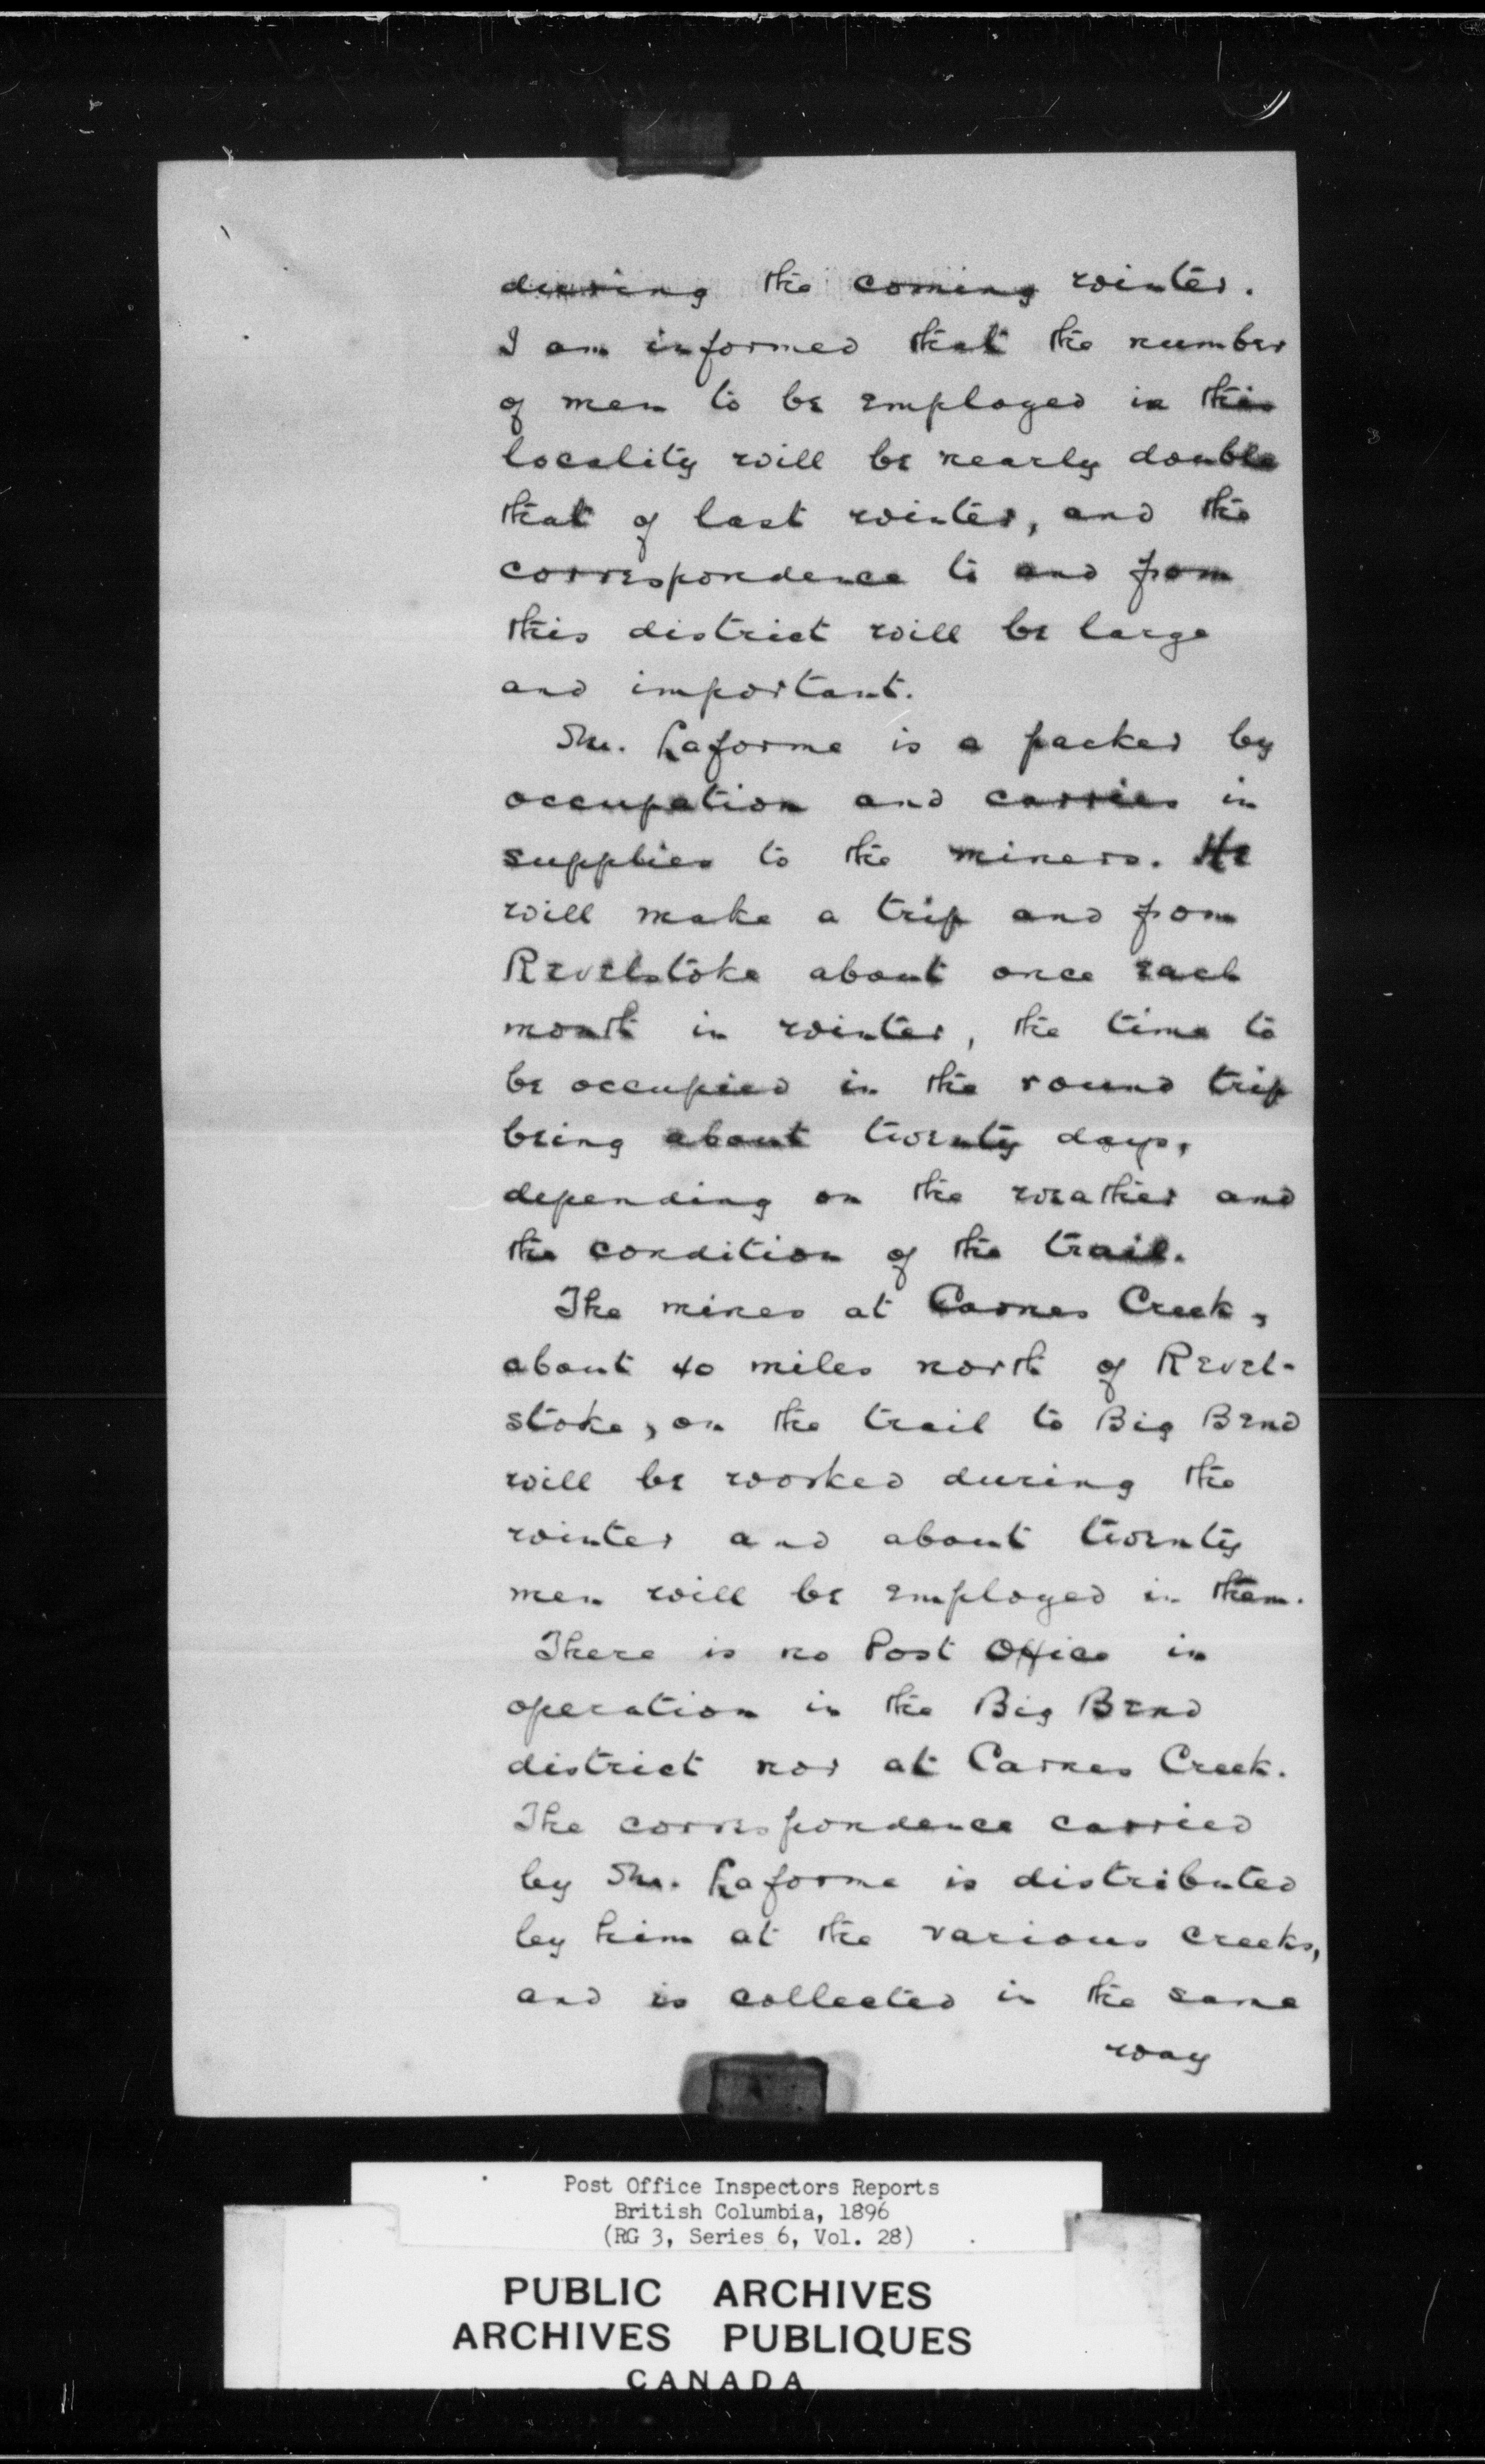 during the coming winter.
I am informed that the number
of men to be employed in this
locality will be nearly double
that of last winter, and the
correspondence to and from
this district will be large
and important.
Mr. Laforme is a packer by
occupation and carries in
supplies to the miners. He
will make a trip and from
Revelstoke about once each
month in winter, the time to
be occupied in the round trip
being about twenty days,
depending on the weather and
the condition of the trail.
The mines at Carnes Creek,
about 40 miles north of Revel-
stoke, on the trail to Big Bend
will be worked during the
winter and about twenty
men will be employed in them.
There is no Post Office in
operation in the Big Bend
district nor at Carnes Creek.
The correspondence carried
by Mr. Laforme is distributed
by him at the various creeks,
and is collected in the same
way
Post Office Inspectors Reports
British Columbia, 1896
(RG 3, Series 6, Vol. 28)
PUBLIC ARCHIVES
ARCHIVES PUBLIQUES
CANADA